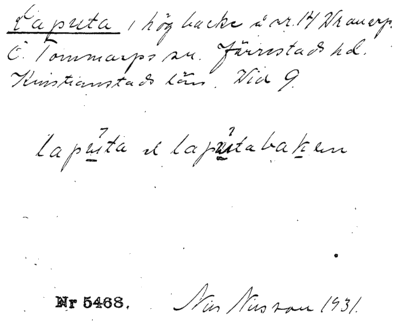 Lapusta, hög backe å nr. 14 Vranarp.
Ö. Tommarps sn. Järrestads hd.
Kristianstads län. Vid 9.
lapusta el lapustabaken
Nr 5468. Nils Nilsson 1931.